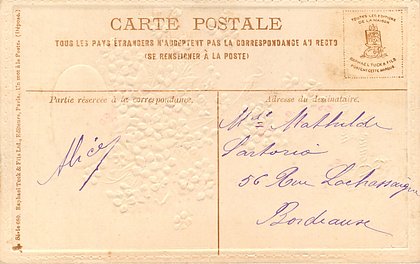 CARTE POSTALE
TOUS LES PAYS ÉTRANGERS N'ACCEPTENT PAS LA CORRESPONDANCE AU RECTO
(SE RENSEIGNER À LA POSTE)
TOUTES LES EDITIONS
DE LA MAISON
RAPHAEL TUCK & FILS
PORTENT CETTE MARQUE
Partie réservée à la correspondance.
Adresse du destinataire.
Alice
Mde Mathilde
Sartorio
56 Rue Lachassaigne
Bordeaux
Série 680. Raphael Tuck & Fils Ltd., Editeurs, Paris. Un mot à la Poste. (Déposé.)